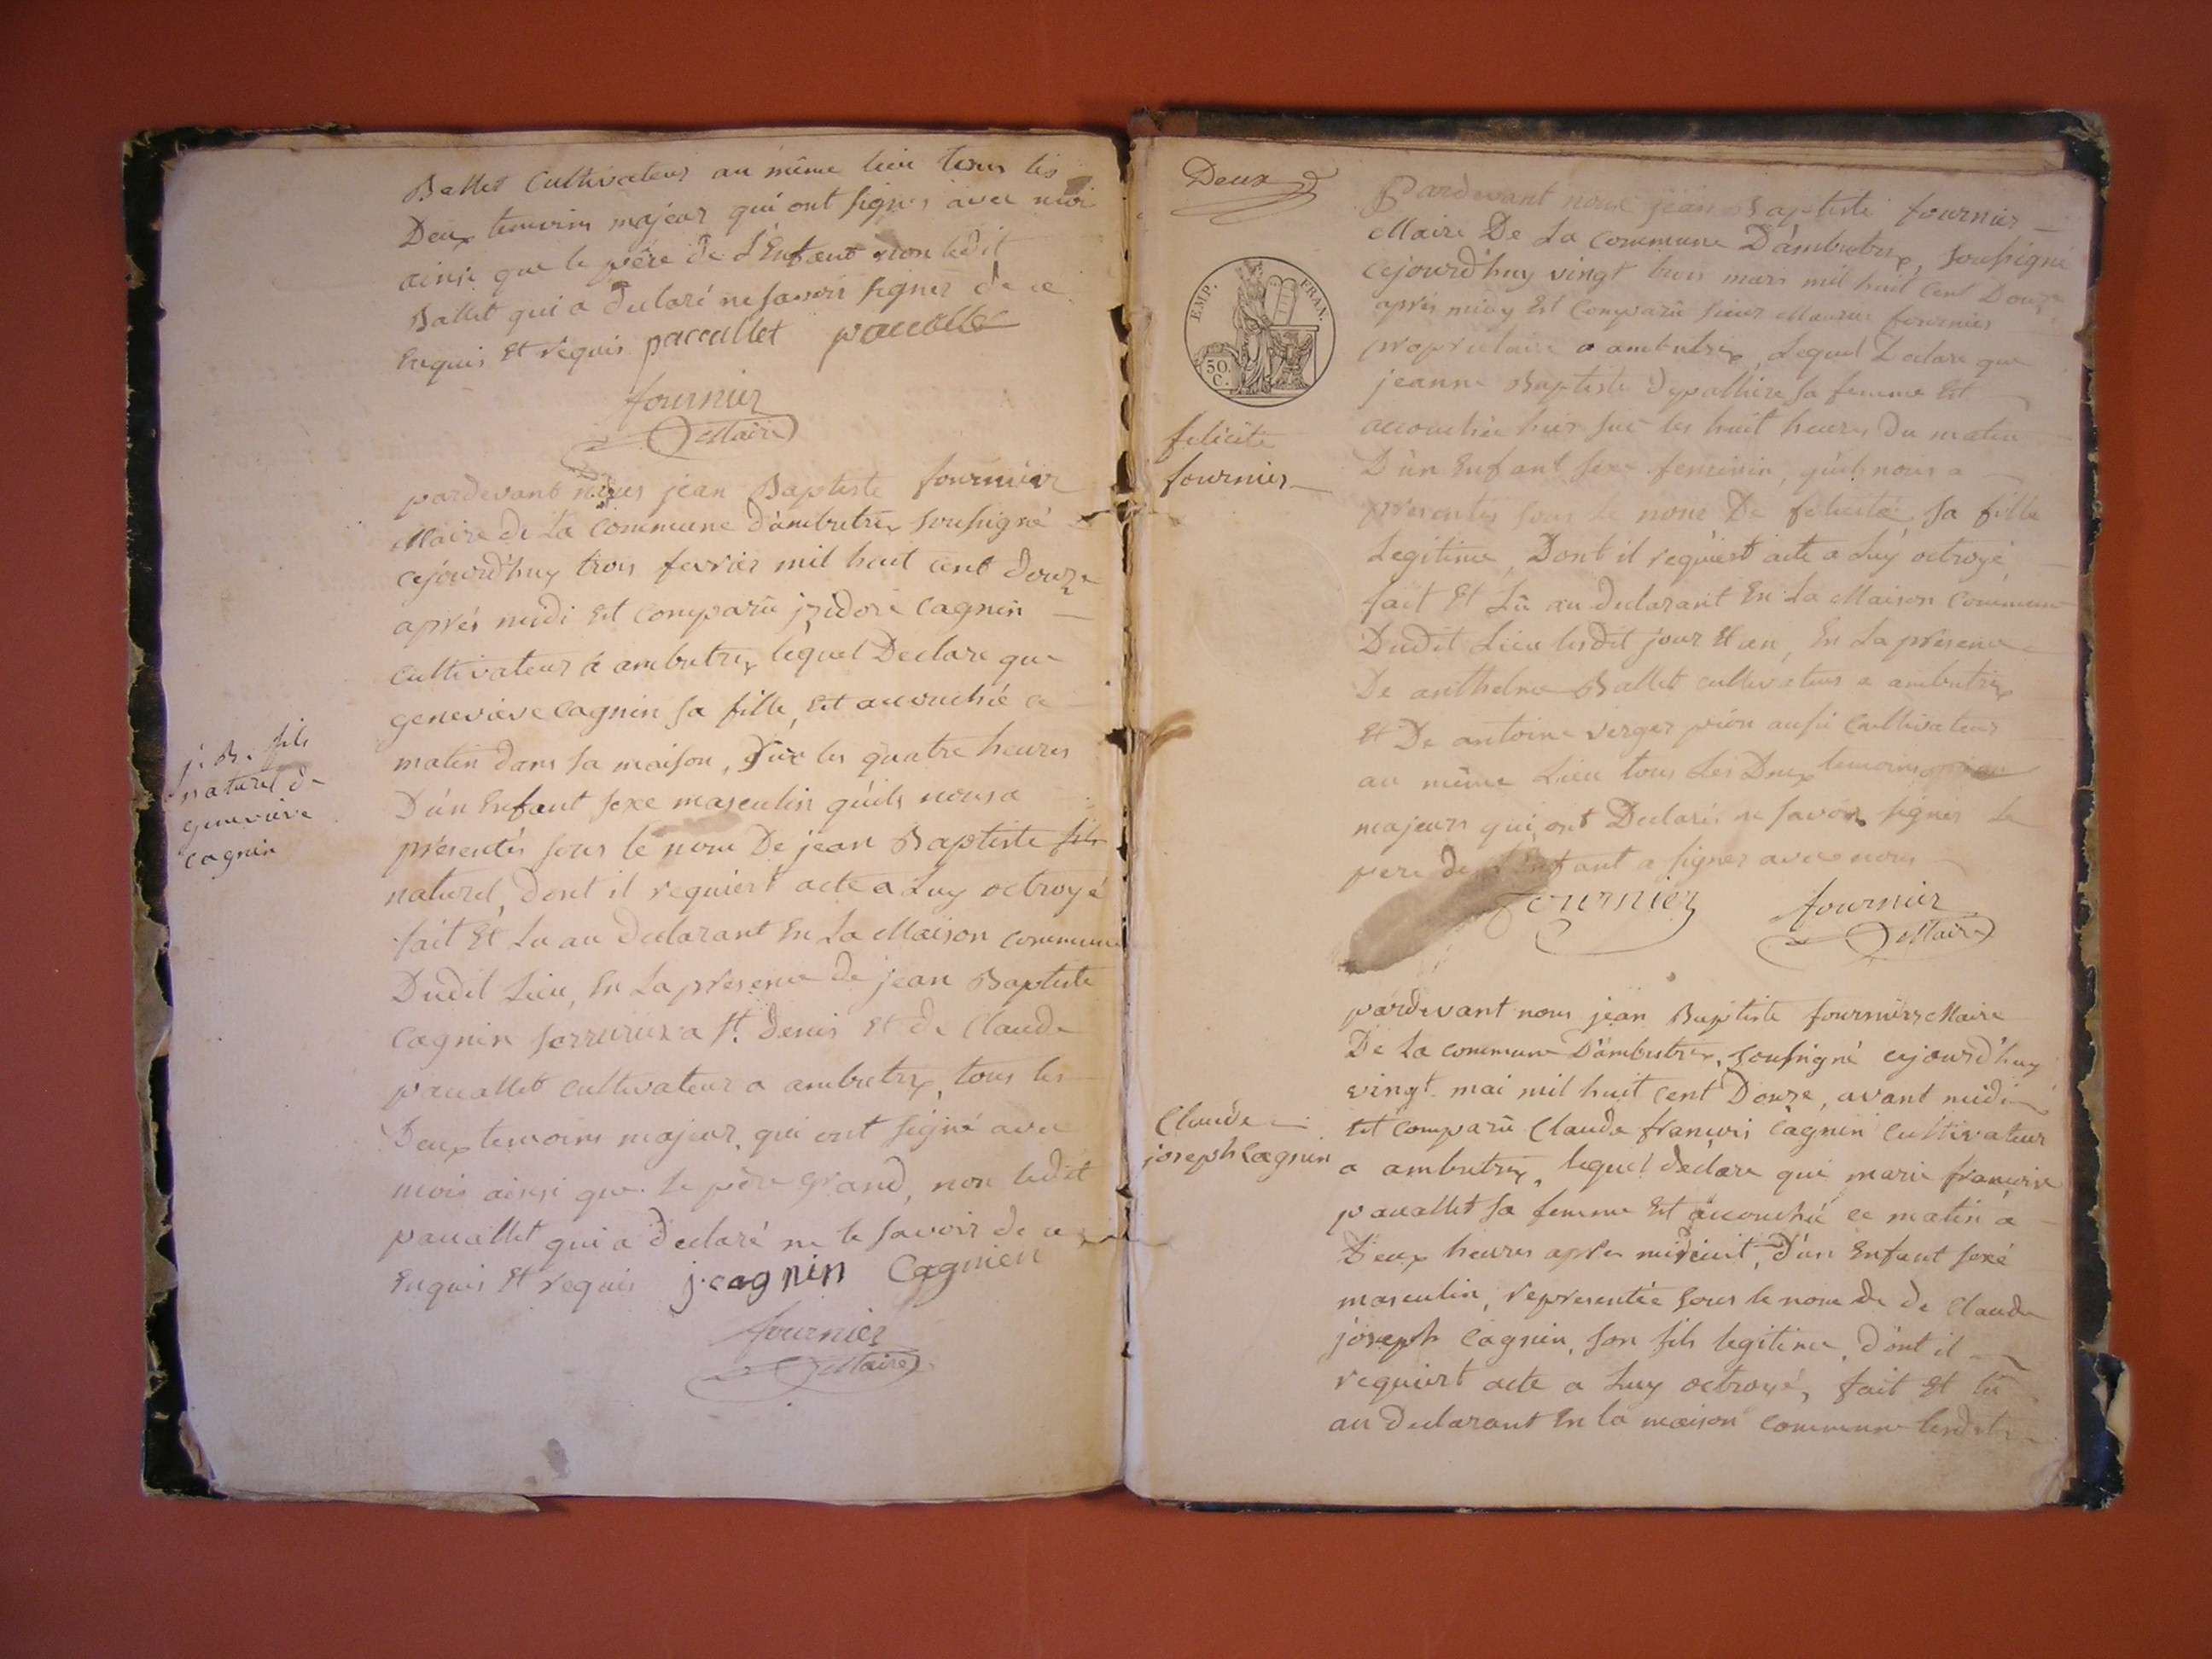 Ballet Cultivateur au même lieu tous les
Deux temoins majeur qui ont signés avec moi
ainsi que le père de L'Enfant non ledit
Ballet qui a declaré ne savoir signer de ce
Enquis Et requis paccallet
fournier
Maire
pardevant nous jean Baptiste fournier
Maire de La Commune d'ambutrix soussigné
cejourd'huy trois fevrier mil huit cent douze
après midi est comparû izidore Cagnin
Cultivateur à ambutrix lequel Declare que
genevieve Cagnin sa fille, est accouchée ce
matin dans sa maison, sur les quatre heures
D'un Enfant sexe masculin qu'ils nous a
presentés sous le nom De jean Baptiste fils
naturel, dont il requiert acte a Luy octroyé
fait Et Lu au declarant En La Maison commune
Dudit Lieu, En La presence de jean Baptiste
Cagnin serrurier a St. Denis Et de Claude
paccallet cultivateur a ambutrix, tous les
Deux temoins majeur, qui ont signé avec
mois ainsi que le père grand, non ledit
paccallet qui a declaré ne le savoir de ce
Enquis Et requis j. cagnin Cagnien
fournier
Maire
j. B. fils
naturel de
genevieve
cagnin
Deux
EMP. FRAN.
50. C.
felicite
fournier
Pardevant nous jean Baptiste fournier
Maire De La Commune D'ambutrix, soussigné
cejourd'huy vingt trois mars mil huit Cent Douze
après midy Est Comparû sieur Maurice fournier
proprietaire a ambutrix, Lequel Declare que
jeanne Baptiste sa femme Est
accouchée hier sur les huit heures du matin
D'un Enfant sexe feminin, qu'ils nous a
presentés sous le nom De felicité sa fille
Legitime, Dont il requiert acte a Luy octroyé
fait Et Lû au declarant En La Maison Commune
Dudit Lieu lesdit jour Et an, En La presence
De anthelme Ballet cultivateur a ambutrix
Et De antoine verger pion aussi Cultivateur
au même Lieu tous Les Deux temoins
majeurs qui ont Declarés ne savoir signer le
pere de L'enfant a signer avec nous
fournier fournier
Maire
Claude
joseph Cagnin
pardevant nous jean Baptiste fournier Maire
De La commune D'ambutrix, soussigné cejourd'huy
vingt mai mil huit cent Douze, avant midi
est comparû Claude françois Cagnin Cultivateur
a ambutrix, lequel declare que marie françoise
paccallet sa femme Est accouchée ce matin a
Deux heures après minuit, d'un Enfant sexé
masculin, representée sous le nom de de Claude
joseph Cagnin, son fils legitime, dont il
requiert acte a Luy octroyé, fait Et lû
au declarant En la maison commune lesdits